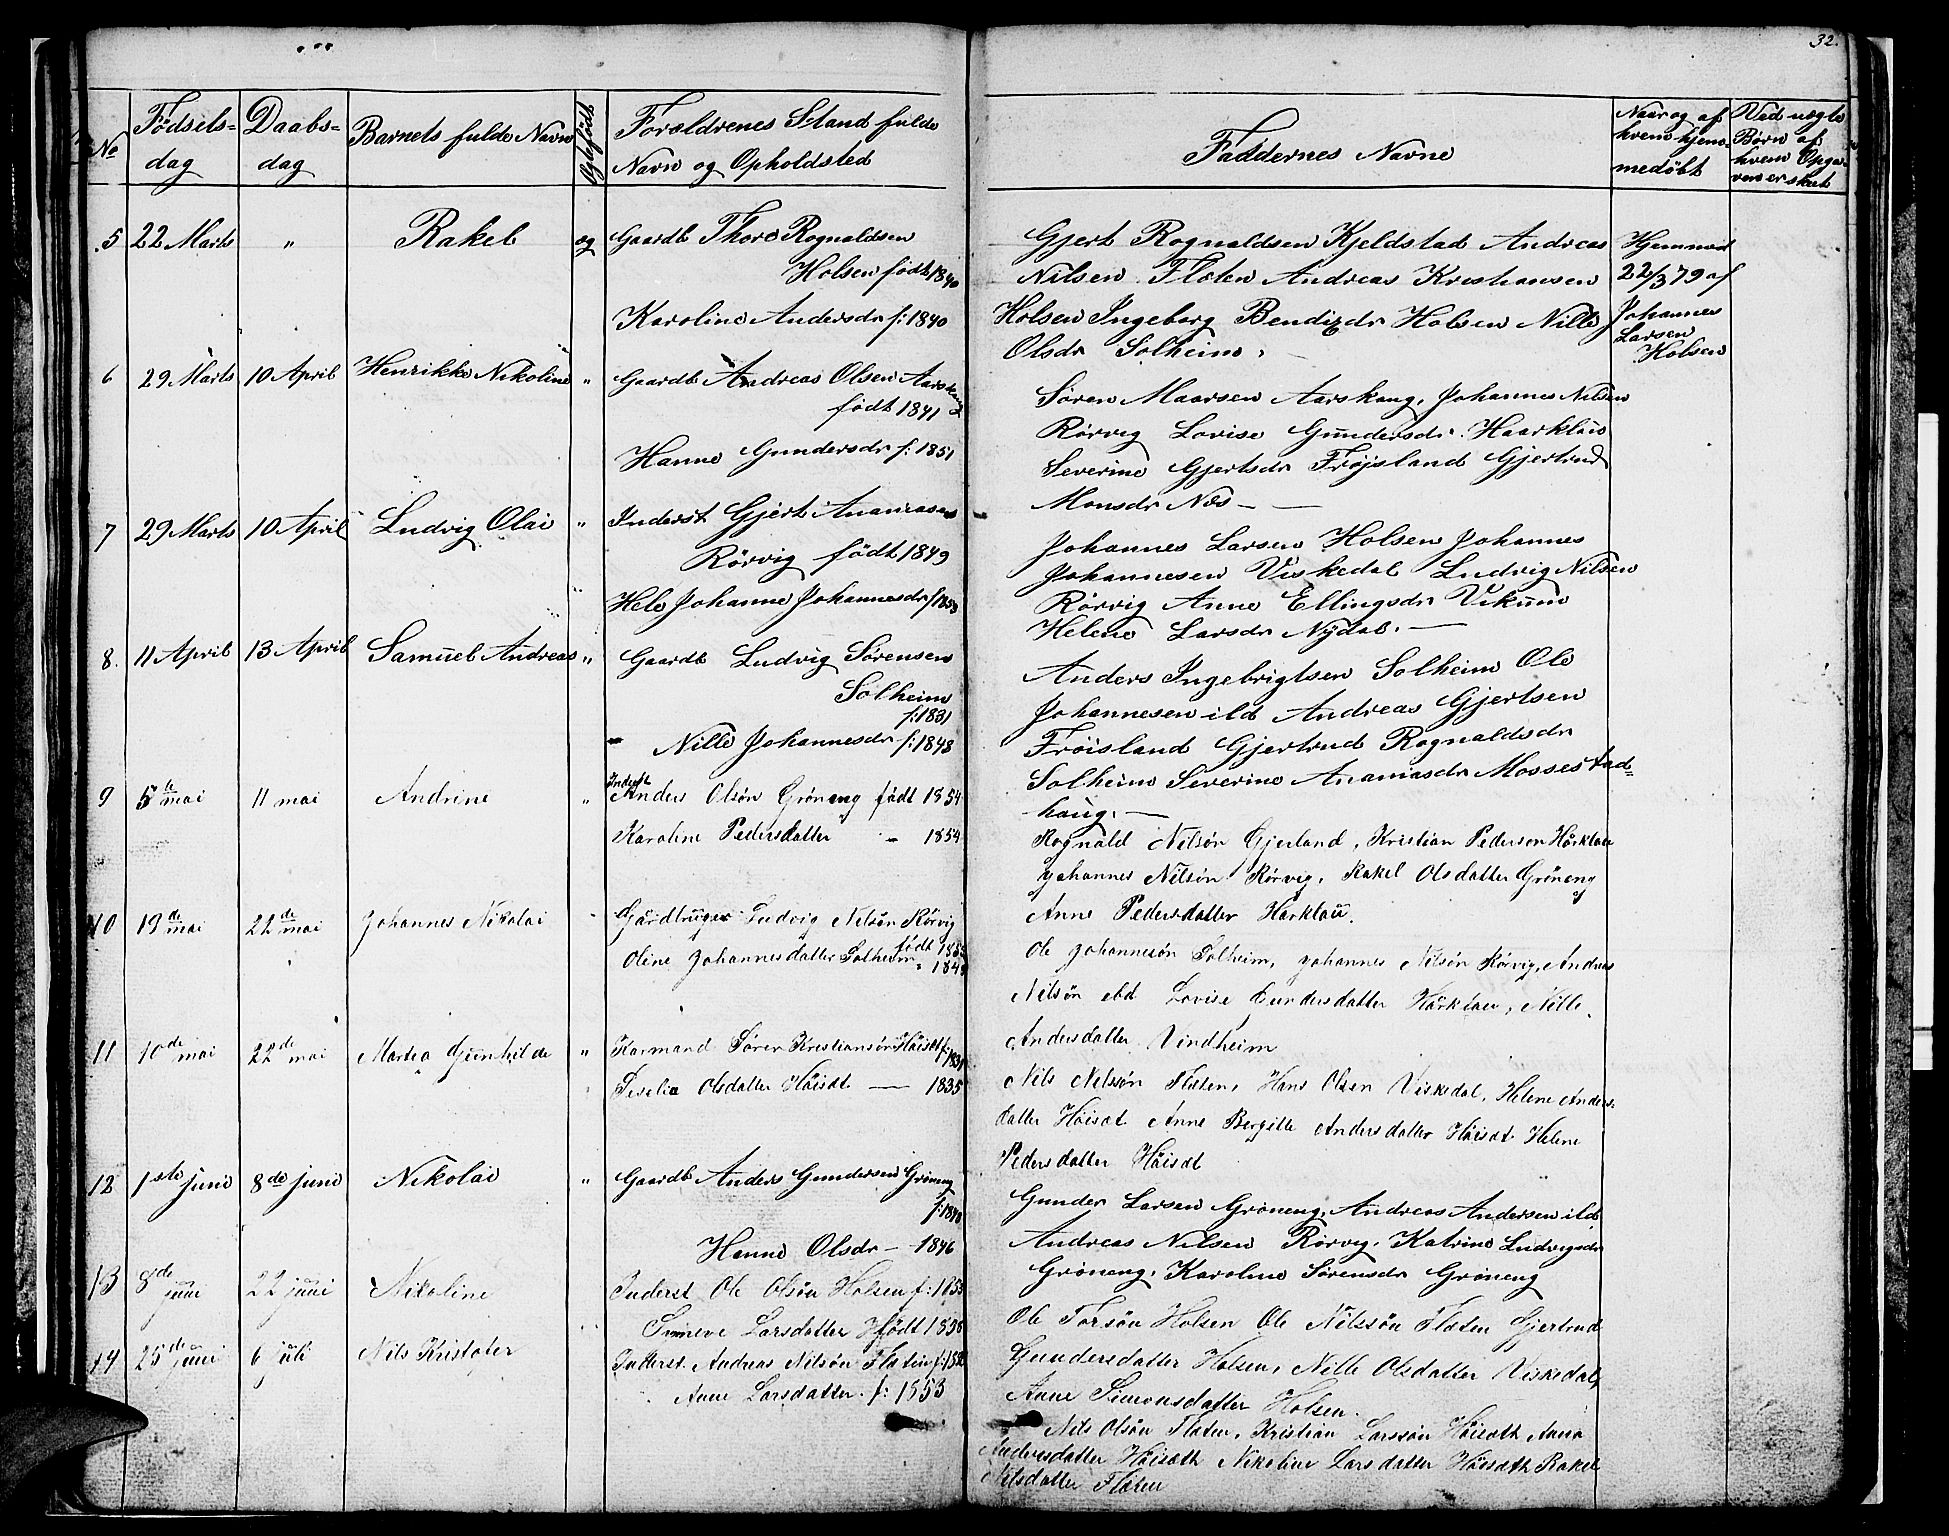 32.
No
Fødsels-
dag
Daabs-
dag
Barnets fulde Navn
Ogtefødt
Forældrenes Stand fulde
Navn og Opholdsted
Faddernes Navne
Naar og af
hvem hjem-
medøbt
Ved uægte
Børn af
hvem Opga-
ven er skeet
5 22 Marts " Rakel og Gaardb Thore Rognaldsen
Holsen født 1840
Karoline Andersdr f: 1840
Gjert Rognaldsen Kjeldstad Andreas
Nilsen Flaten Andreas Kristiansen
Holsen Ingeborg Bendixdr Holsen Nille
Olsdr Solheim.
Hjemmed
22/3 79 af
Johannes
Larsen
Holsen
6 29 Marts 10 April Henrikke Nikoline " Gaardb Andreas Olsen Aarskaug
født 1841
Hanne Gundersdr f: 1851
Søren Maarsen Aarskaug, Johannes Nilsen
Rørvig Lovise Gundersdr. Haarklau
Severine Gjertsdr Frøjsland Gjertrud
Monsdr Næs —
7 29 Marts 10 April Ludvig Olai " Inderst Gjert Ananiasen
Rørvig født 1849
Hele Johanne Johannesdr f 1853
Johannes Larsen Holsen Johannes
Johannesen Viskedal Ludvig Nilsen
Rørvig Anne Ellingsdr Vikum
Helene Larsdr Nydal. —
8. 11 April 13 April Samuel Andreas " Gaardb Ludvig Sørensen
Solheim
f: 1831
Nille Johannesdr f: 1848
Anders Ingebrigtsen Solheim Ole
Johannesen ild Andreas Gjertsen
Frøisland Gjertrud Rognaldsdr
Solheim Severine Ananiasdr Mossestad=
haug. —
9 5te mai 11 mai Andrine " Inderst
Anders Olsøn Grøneng født 1854
Karoline Pedersdatter " 1854
Rognald Nilsøn Gjerland, Kristian Pederson Hårklau
Johannes Nilsøn Rørvig, Rakel Olsdatter Grøneng
Anne Pedersdatter Harklau.
10 19de mai 22de mai Johannes Nikolai Gårdbruger Ludvig Nilsøn Rørvig
født 1835
Oline Johannesdatter Solheim " 184
Ole Johannesøn Solheim, Johannes Nilsøn Rørvig, Andreas
Nilsøn ebd Lovise Gundersdatter Hårklau, Nille
Andersdatter Vindheim
11 10de mai 22de mai Martea Gunhilde " Karmand Søren Kristiansøn Håisæt f: 1831
Siselia Olsdatter Håisæt — 1835
Nils Nilssøn Flaten, Hans Olsen Viskedal, Helene Anders-
datter Håisæt Anne Bergitte Andersdatter Håisæt Helene
Pedersdatter Håisæt
12 1ste juni 8de juni Nikolai " Gaardb Anders Gundersen Grøneng
f: 1840
Hanne Olsdr — 1846
Gunder Larsen Grøneng, Andreas Andersen ild
Andreas Nilsen Rørvig, Katrine Ludvigsdr
Grøneng, Karoline Sørensdr Grøneng
13 8de juni 22 juni Nikoline Inderst Ole Olsøn Holsen f: 1853
Sunneve Larsdatter født 1838
Ole Torsøn Holsen Ole Nilssøn Flaten Gjertrud
Gundersdatter Holsen, Nille Olsdatter Viskedal,
Anne Simonsdatter Holsen.
14 25de juni 6 juli Nils Kristofer Inderst. Andreas Nilsøn Flaten f: 185
Anne Larsdatter. f: 1853
Nils Olsøn Flaten, Kristian Larssøn Håisæth Anna
Andersdatter Håisæth Nikoline Larsdatter Håisæth Rakel
Nilsdatter Flaten